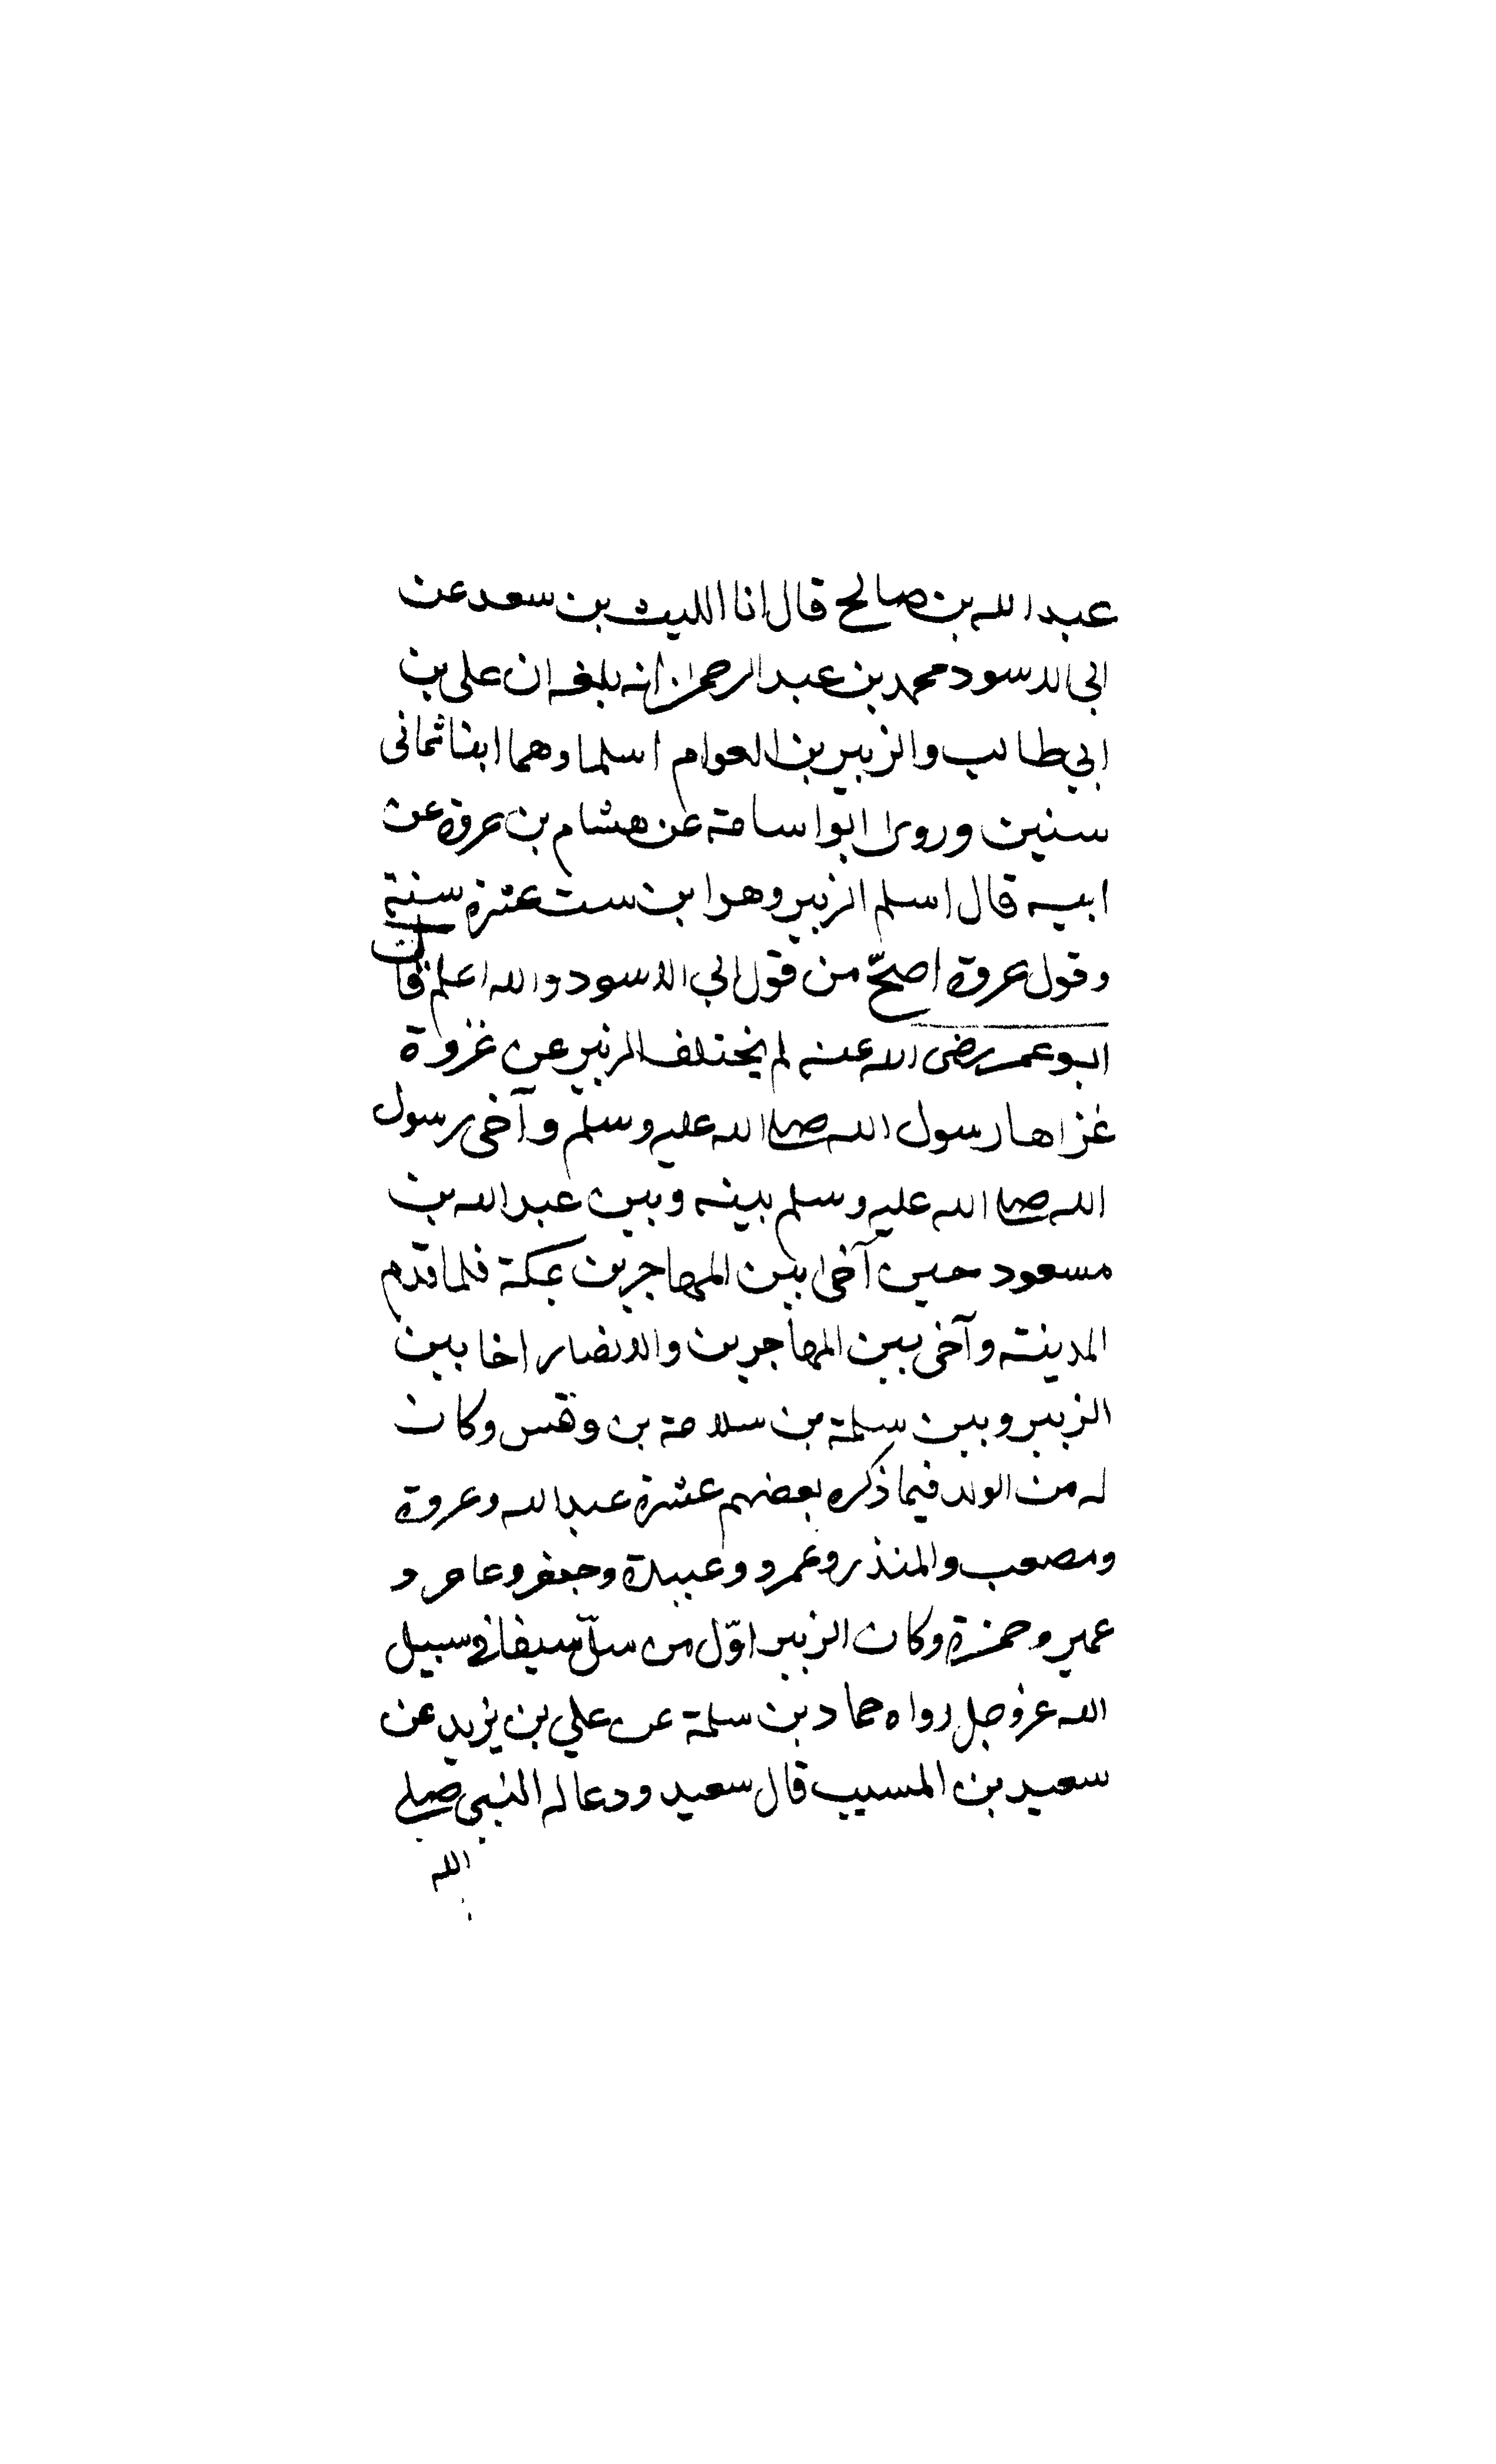 عبد الله بن صالح قال انا الليث بن سعد عن
ابي الاسود محمد بن عبد الرحمن انه بلغه ان علي بن
ابي طالب والزبير بن العوام اسلما وهما ابنا ثماني
سنين وروى ابو اسامة عن هشام بن عروة عن
ابيه قال اسلم الزبير وهو ابن ست عشرة سنة
وقول عروة اصحّ من قول ابي الاسود والله اعلم قال
ابو عمر رضى الله عنه لم يختلف الزبير عن غزوة
غزاها رسول الله صلى الله عليه وسلم وآخى رسول
الله صلى الله عليه وسلم بينه وبين عبد الله بن
مسعود حين آخى بين المهاجرين بمكة فلما قدم
المدينة وآخى بين المهاجرين والانصار اخا بين
الزبير وبين سلمة بن سلامة بن وقس وكان
له من الولد فيما ذكره بعضهم عشرة عبد الله وعروة
ومصعب والمنذر وعمرو وعبيدة وجعفر وعامر و
عمير وحمزة وكان الزبير اوّل من سلّ سيفا في سبيل
الله عز وجل رواه حماد بن سلمة عن علي بن يزيد عن
سعيد بن المسيب قال سعيد ودعا له النبي صلى
الله